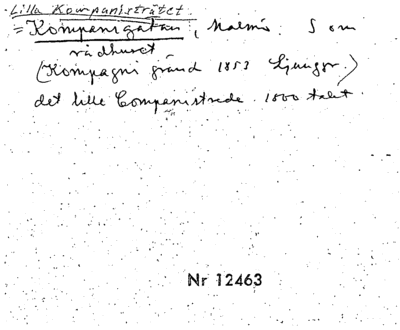 Lilla Kompanisträtet
= Kompanigatan, Malmö. S om
rådhuset
(Kompagni gränd 1853 Ljunggr.)
det lille Companistrede 1600 talet.
Nr 12463